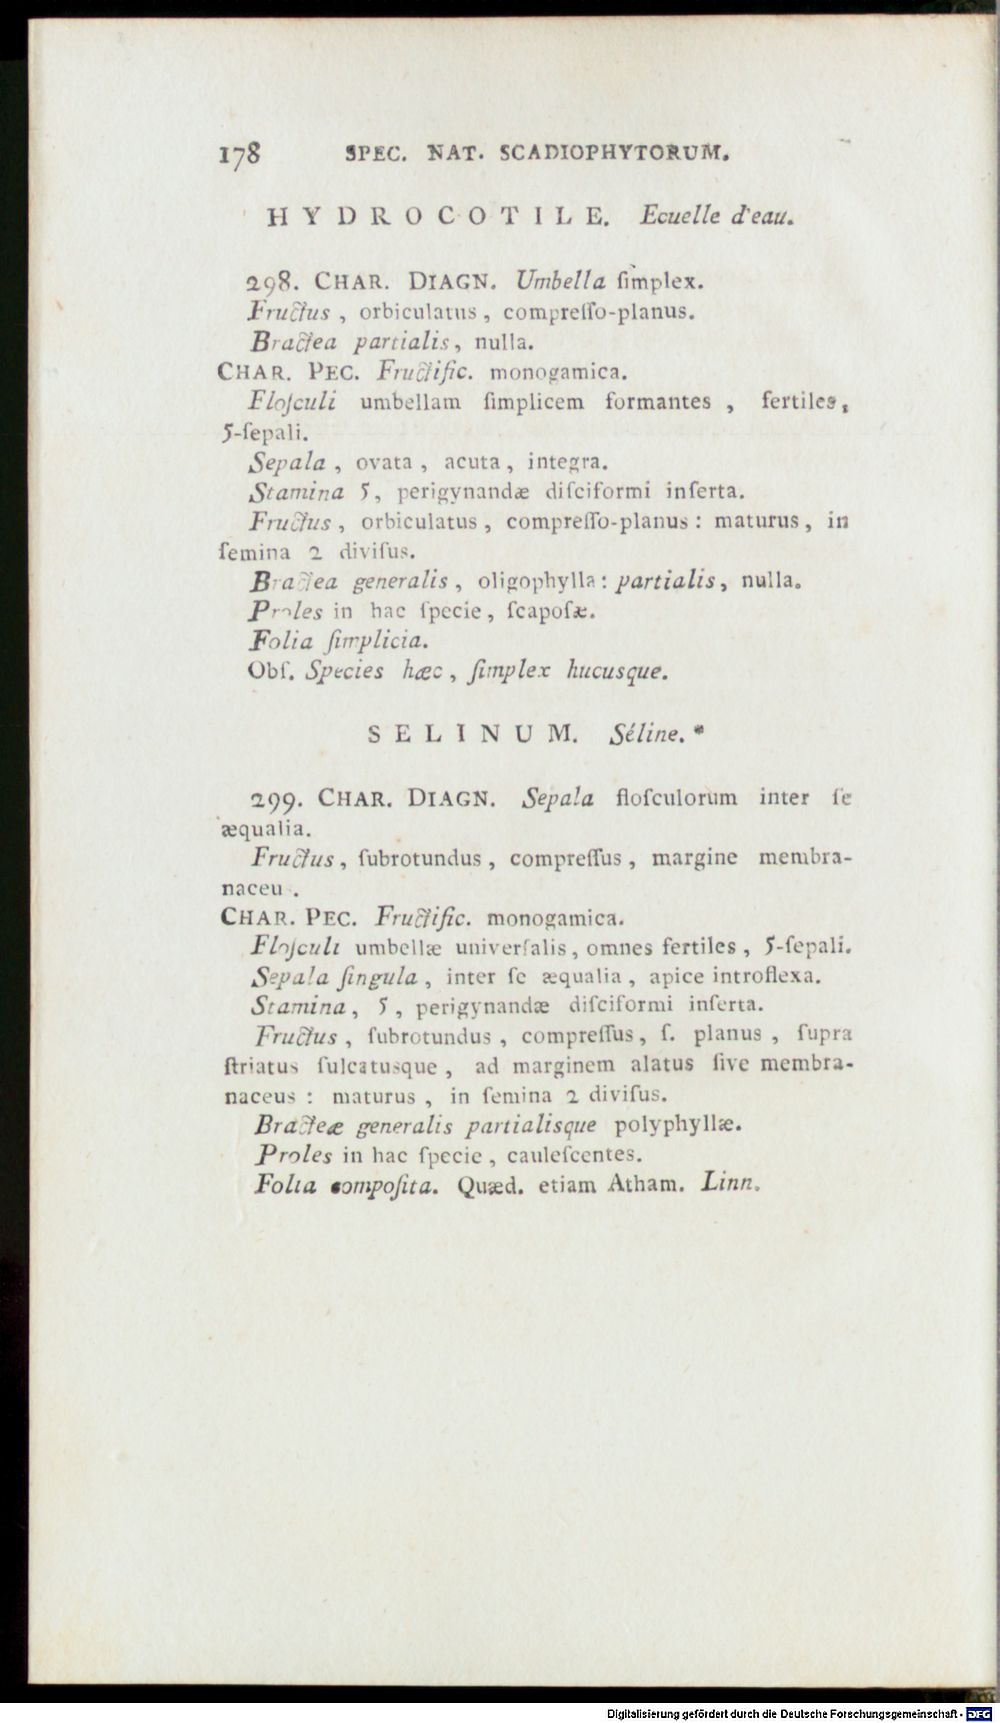 178 SPEC. NAT. SCADIOPHYTORUM.
HYDROCOTILE. Ecuelle d'eau.
298. CHAR. DIAGN. Umbella ſimplex.
Fructus , orbiculatus , compreſſo-planus.
Bractea partialis, nulla.
CHAR. PEC. Fructific. monogamica.
Floſculi umbellam ſimplicem formantes , fertiles,
5-ſepali.
Sepala , ovata , acuta , integra.
Stamina 5, perigynandæ diſciformi inſerta.
Fructus , orbiculatus , compreſſo-planus : maturus , in
ſemina 2 diviſus.
Bractea generalis , oligophylla : partialis, nulla.
Proles in hac ſpecie , ſcapoſæ.
Folia ſimplicia.
Obſ. Species hæc , ſimplex hucusque.
SELINUM. Séline. *
299. CHAR. DIAGN. Sepala floſculorum inter ſe
æqualia.
Fructus , ſubrotundus , compreſſus , margine membra-
naceu .
CHAR. PEC. Fructific. monogamica.
Floſculi umbellæ univerſalis , omnes fertiles , 5-ſepali.
Sepala ſingula , inter ſe æqualia , apice introflexa.
Stamina , 5 , perigynandæ diſciformi inſerta.
Fructus , ſubrotundus , compreſſus , ſ. planus , ſupra
ſtriatus ſulcatusque , ad marginem alatus ſive membra-
naceus : maturus , in ſemina 2 diviſus.
Bracteæ generalis partialisque polyphyllæ.
Proles in hac ſpecie , cauleſcentes.
Folia compoſita. Quæd. etiam Atham. Linn.
Digitalisierung gefördert durch die Deutsche Forschungsgemeinschaft - DFG